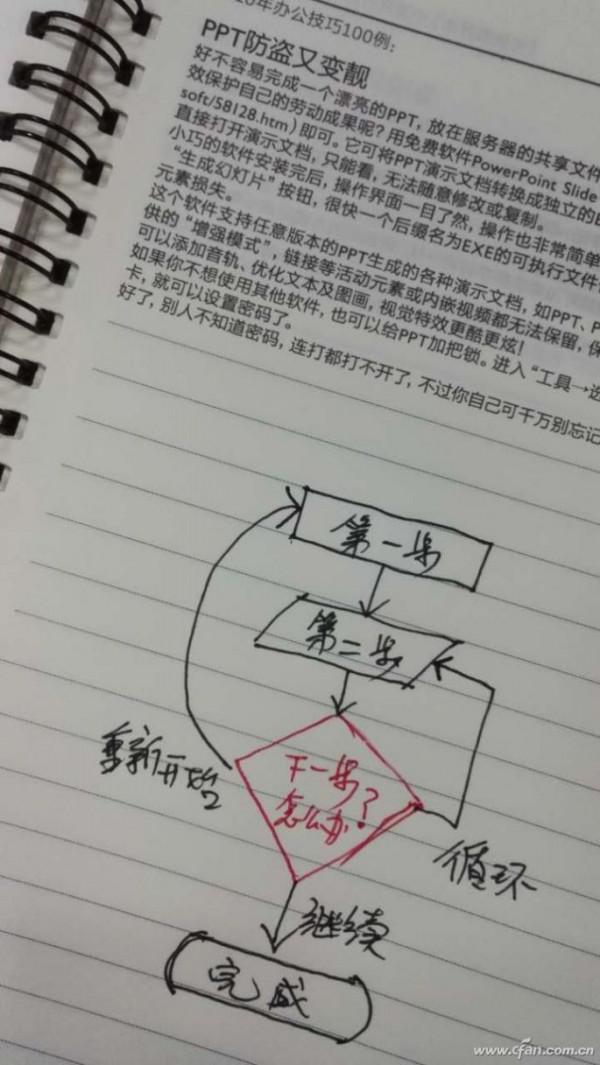 10年办公技巧100例：
PPT防盗又变靓
好不容易完成一个漂亮的PPT，放在服务器的共享文件
效保护自己的劳动成果呢？用免费软件PowerPoint Slide
soft/58128.htm）即可。它可将PPT演示文档转换成独立的
直接打开演示文档，只能看，无法随意修改或复制。
小巧的软件安装完后，操作界面一目了然，操作也非常简单
“生成幻灯片”按钮，很快一个后缀名为EXE的可执行文件
元素损失。
这个软件支持任意版本的PPT生成的各种演示文档，如PPT、P
供的“增强模式”，链接等活动元素或内嵌视频都无法保留，保
可以添加音轨、优化文本及图画，视觉特效更酷更炫！
如果你不想使用其他软件，也可以给PPT加把锁。进入“工具→选
卡，就可以设置密码了。
好了，别人不知道密码，连打都打不开了，不过你自己可千万别忘记
第一步
第二步
下一步？
怎么办？
重新开始
循环
继续
完成
www.cfan.com.cn